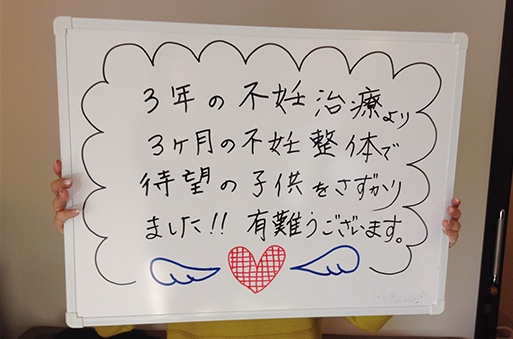 3年の不妊治療より
3ヶ月の不妊整体で
待望の子供をさずかり
ました!! 有難うございます。